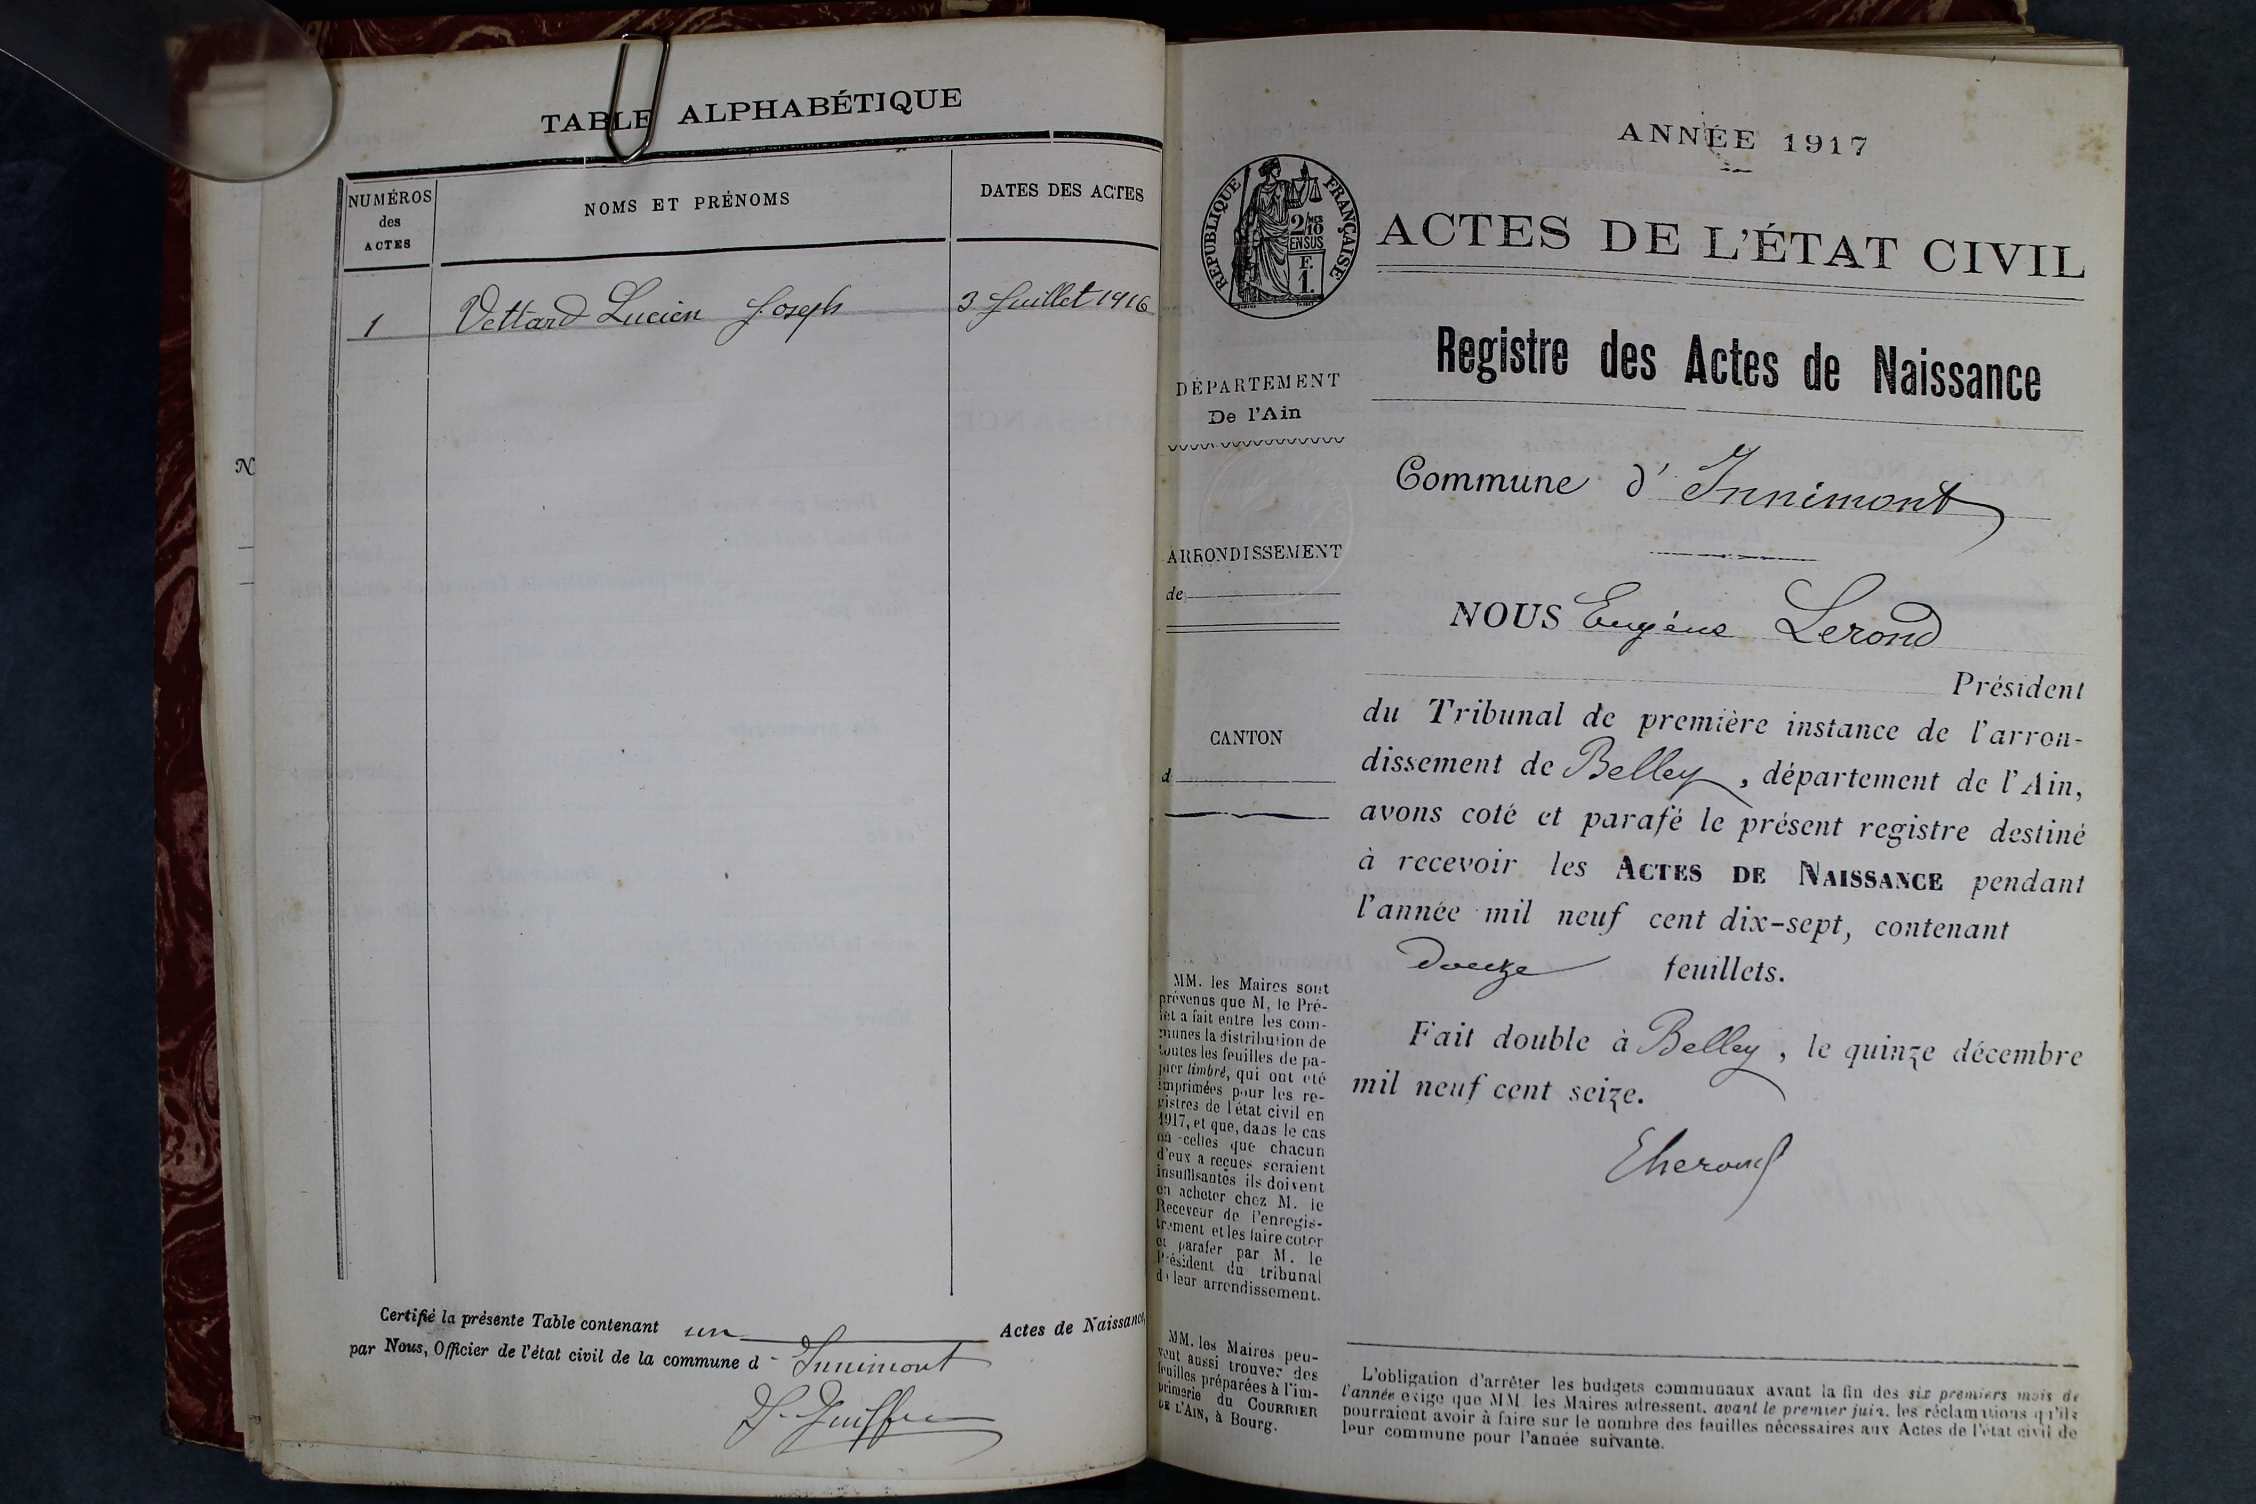 TABLE ALPHABÉTIQUE
NUMÉROS
des
ACTES
NOMS ET PRÉNOMS
DATES DES ACTES
1 Vettard Lucien Joseph 3 Juillet 1916
Certifié la présente Table contenant un Actes de Naissance,
par Nous, Officier de l'état civil de la commune d Innimont
N
ANNÉE 1917
RÉPUBLIQUE FRANÇAISE
2/10 MES
EN SUS
F.
1.
ACTES DE L'ÉTAT CIVIL
Registre des Actes de Naissance
DÉPARTEMENT
De l'Ain
Commune d' Innimont
ARRONDISSEMENT
de
NOUS Eugène Lerond
Président
du Tribunal de première instance de l'arron-
dissement de Belley, département de l'Ain,
avons coté et parafé le présent registre destiné
à recevoir les ACTES DE NAISSANCE pendant
l'année mil neuf cent dix-sept, contenant
douze feuillets.
Fait double à Belley, le quinze décembre
mil neuf cent seize.
ELerond
CANTON
d
MM. les Maires sont
prévenus que M. le Pré-
fet a fait entre les com-
munes la distribution de
toutes les feuilles de pa-
pier timbré, qui ont été
imprimées pour les re-
gistres de l'état civil en
1917, et que, dans le cas
où celles que chacun
d'eux a reçues seraient
insuffisantes ils doivent
en acheter chez M. le
Receveur de l'enregis-
trement et les faire coter
et parafer par M. le
Président du tribunal
de leur arrondissement.
MM. les Maires peu-
vent aussi trouver des
feuilles préparées à l'im-
primerie du COURRIER
DE L'AIN, à Bourg.
L'obligation d'arrêter les budgets communaux avant la fin des six premiers mois de
l'année exige que MM. les Maires adressent, avant le premier juin, les réclamations qu'ils
pourraient avoir à faire sur le nombre des feuilles nécessaires aux Actes de l'état civil de
leur commune pour l'année suivante.